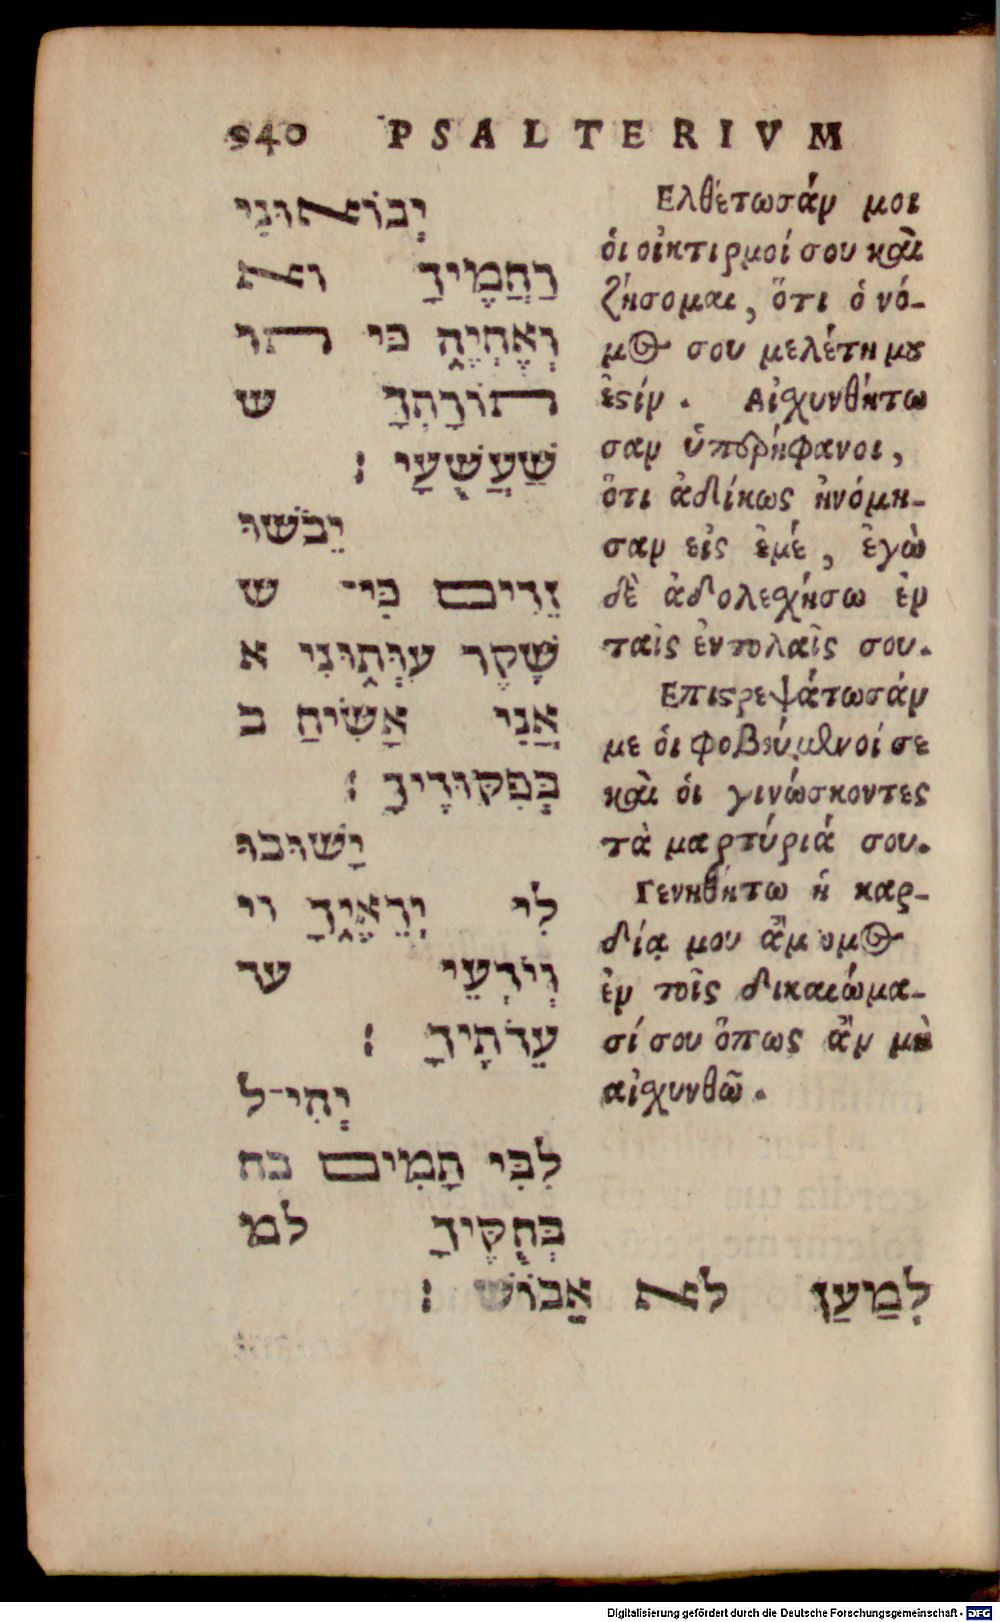 940 PSALTERIVM
יְבוֹאוּנִי
רַחֲמֶיךָ וא
וְאֶחְיֶה כי תו
תוֹרָתְךָ ש
שַׁעֲשֻׁעָי :
יֵבֹשׁוּ
זֵדִים כִּי־ ש
שֶׁקֶר עִוְּתוּנִי א
אֲנִי אָשִׂיחַ ב
בְּפִקּוּדֶיךָ :
יָשׁוּבוּ
לִי יְרֵאֶיךָ וי
וְיֹדְעֵי עד
עֵדֹתֶיךָ :
יְהִי־ל
לִבִּי תָמִים בח
בְּחֻקֶּיךָ למ
לְמַעַן לא אֵבוֹשׁ :
Ελθέτωσάν μοι
ὁι οἰκτιρμοί σου καὶ
ζήσομαι, ὅτι ὁ νό-
μος σου μελέτη μου
ἐστίν. Αἰχυνθήτω
σαν ὑπερήφανοι,
ὅτι ἀδίκως ἠνόμη-
σαν εἰς ἐμέ, ἐγὼ
δὲ ἀδολεχήσω ἐν
ταῖς ἐντολαῖς σου.
Επιστρεψάτωσάν
με ὁι φοβούμενοί σε
καὶ ὁι γινώσκοντες
τὰ μαρτύριά σου.
Γενηθήτω ἡ καρ-
δία μου ἄμωμος
ἐν τοῖς δικαιώμα-
σί σου ὅπως ἂν μὴ
αἰχυνθῶ.
Digitalisierung gefördert durch die Deutsche Forschungsgemeinschaft - DFG